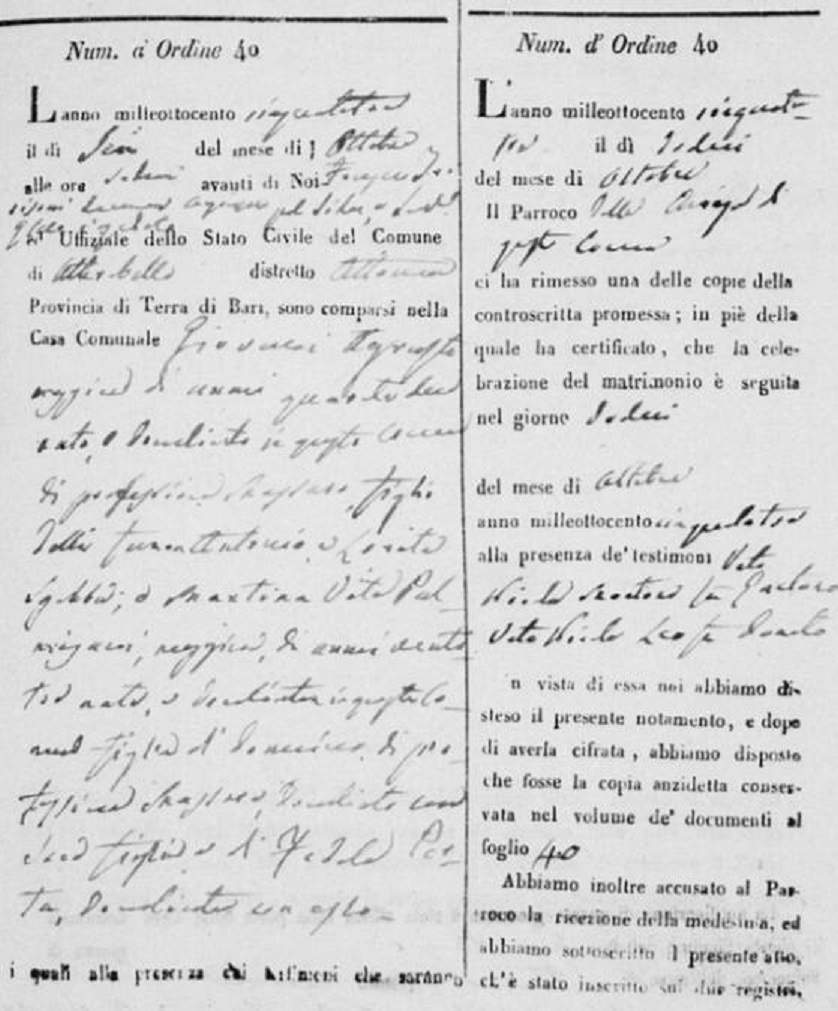 Num. d' Ordine 40
L'anno milleottocento cinquantatre
il dì Sei del mese di Ottobre
alle ore avanti di Noi
ed Uffiziale dello Stato Civile del Comune
di Alberobello distretto Altamura
Provincia di Terra di Bari, sono comparsi nella
Casa Comunale Giovanni
maggiore di anni quaranta due
nato, e domiciliato in questo Comune
di professione figlio
delli furono Antonio, e
e Martina Vita Pal-
misani, maggiore, di anni venti
tre nata, e domiciliata in questo Co-
mune figlia di Domenico, di pro-
fessione domiciliato con
sua figlia e di Fedele
ta, domiciliata con esso
i quali alla presenza dei testimoni che saranno
Num. d' Ordine 40
L'anno milleottocento cinquanta-
tre il dì dodici
del mese di Ottobre
Il Parroco della Chiesa di
questo Comune
ci ha rimesso una delle copie della
controscritta promessa; in piè della
quale ha certificato, che la cele-
brazione del matrimonio è seguita
nel giorno dodici
del mese di Ottobre
anno milleottocento cinquantatre
alla presenza de' testimoni Vito
Nicola fu
Vito Nicola Leo fu Donato
n vista di essa noi abbiamo di-
steso il presente notamento, e dopo
di averla cifrata, abbiamo disposto
che fosse la copia anzidetta conser-
vata nel volume de' documenti al
foglio 40
Abbiamo inoltre accusato al Par-
roco la ricezione della medesima, ed
abbiamo sottoscritto il presente atto,
ch'è stato inscritto sui due registri,